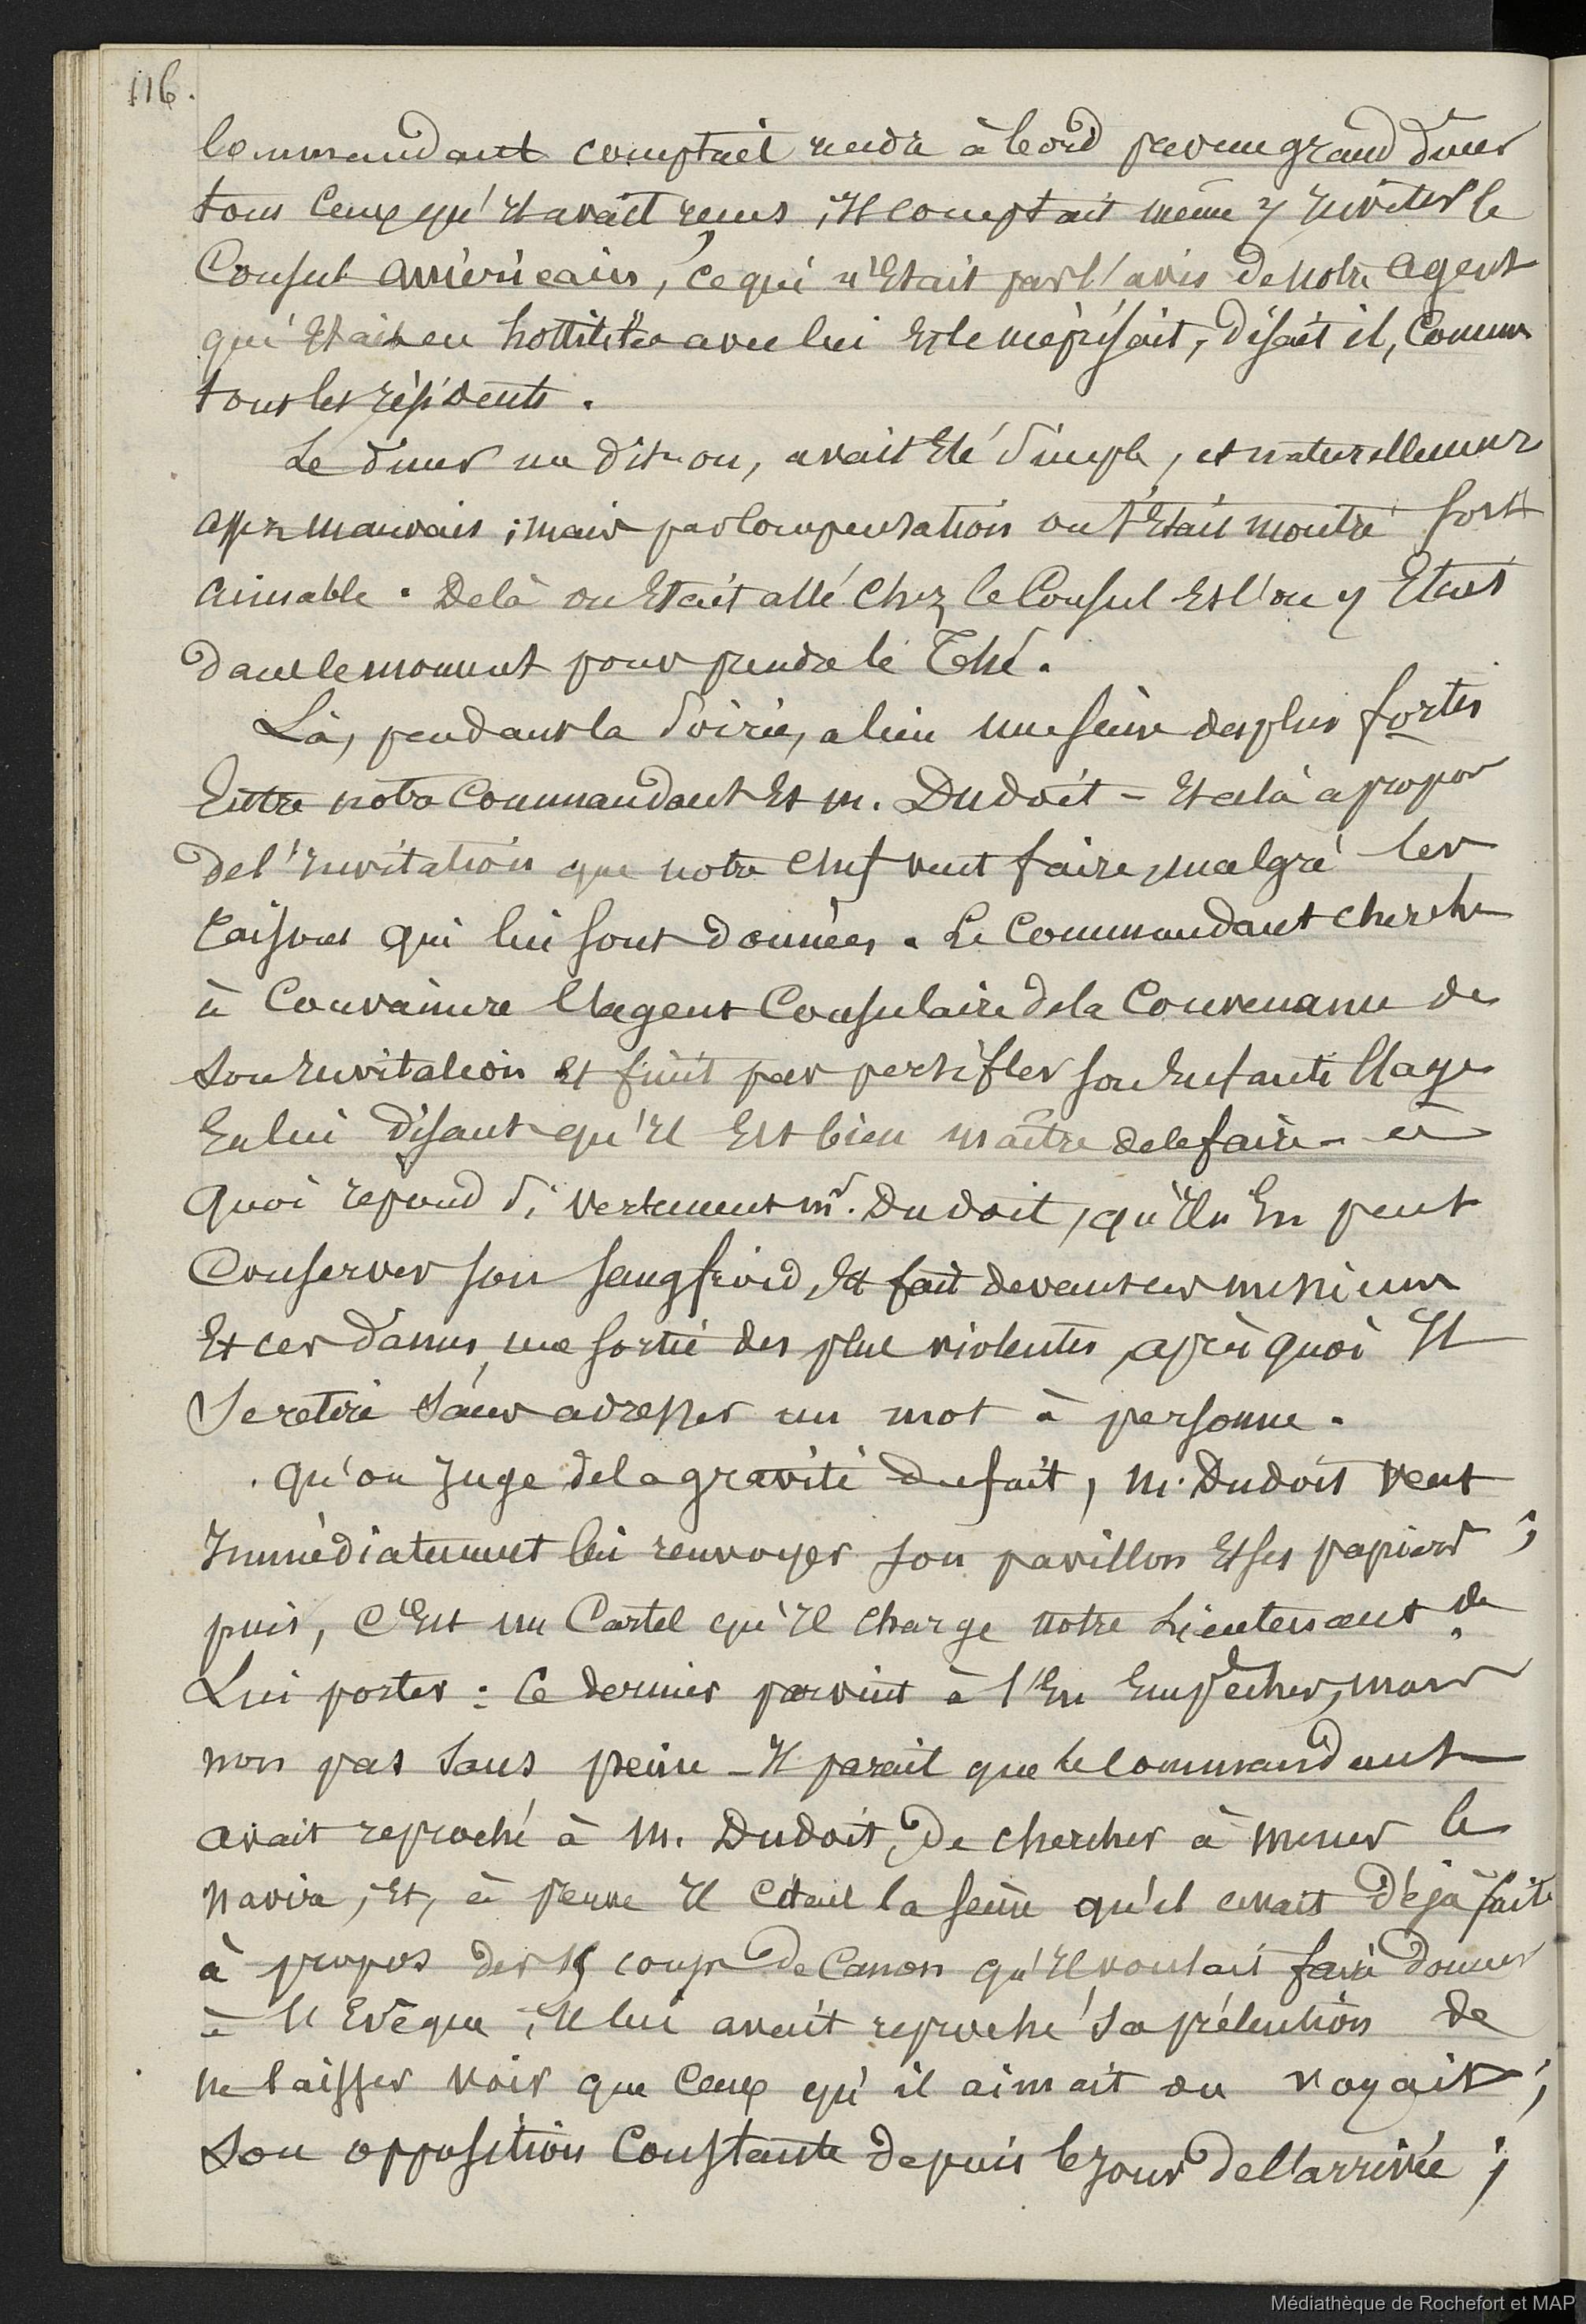 116.
Commandant comptait rendre à bord par un grand diner
tous ceux qu'Il avait reçus ; Il comptait même y Inviter le
Consul américain, ce qui n'Etait pas l'avis de notre agent
qui Etait en hostilités avec lui Et le méprisait, disait il, Comme
tous les résidents.
Le diner me dit-on, avait Eté simple, et naturellement
assez mauvais ; mais par compensation on s'Etait montré fort
aimable. De là on Etait allé chez le Consul Et l'on y Etait
dans le moment pour prendre le Thé.
Là, pendant la soirée, a lieu une scène des plus fortes
Entre notre Commandant Et m. Dudoit - Et cela a propos
de l'Invitation que notre chef veut faire, malgré les
raisons qui lui sont données. Le Commandant cherche
à Convaincre l'agent Consulaire de la Convenance de
son Invitation et finit par persifler son Enfantillage
En lui disant qu'Il Est bien maître de le faire - à
quoi répond si vertement mr. Dudoit, qu'Il n'En peut
Conserver son sang froid, Et fait devant ces messieurs
Et ces dames, une sortie des plus violentes, après quoi Il
se retire sans adresser un mot à personne.
Qu'on Juge de la gravité du fait, M. Dudoit veut
Immédiatement lui renvoyer son pavillon Et ses papiers ;
puis, c'Est un Cartel qu'Il charge notre Lieutenant de
Lui porter : Ce dernier parvint à l'En Empêcher, mais
non pas sans peine - Il parait que le Commandant
avait reproché à M. Dudoit, de chercher à mener le
navire ; Et, à preuve Il citait la scène qu'il avait déjà faite
à propos des coups de Canon qu'Il voulait faire donner
à l'Evêque ; Il lui avait reproché sa prétention de
ne laisser voir que Ceux qu'il aimait ou voyait ;
Son opposition Constante depuis le jour de l'arrivée ;
Médiathèque de Rochefort et MAP